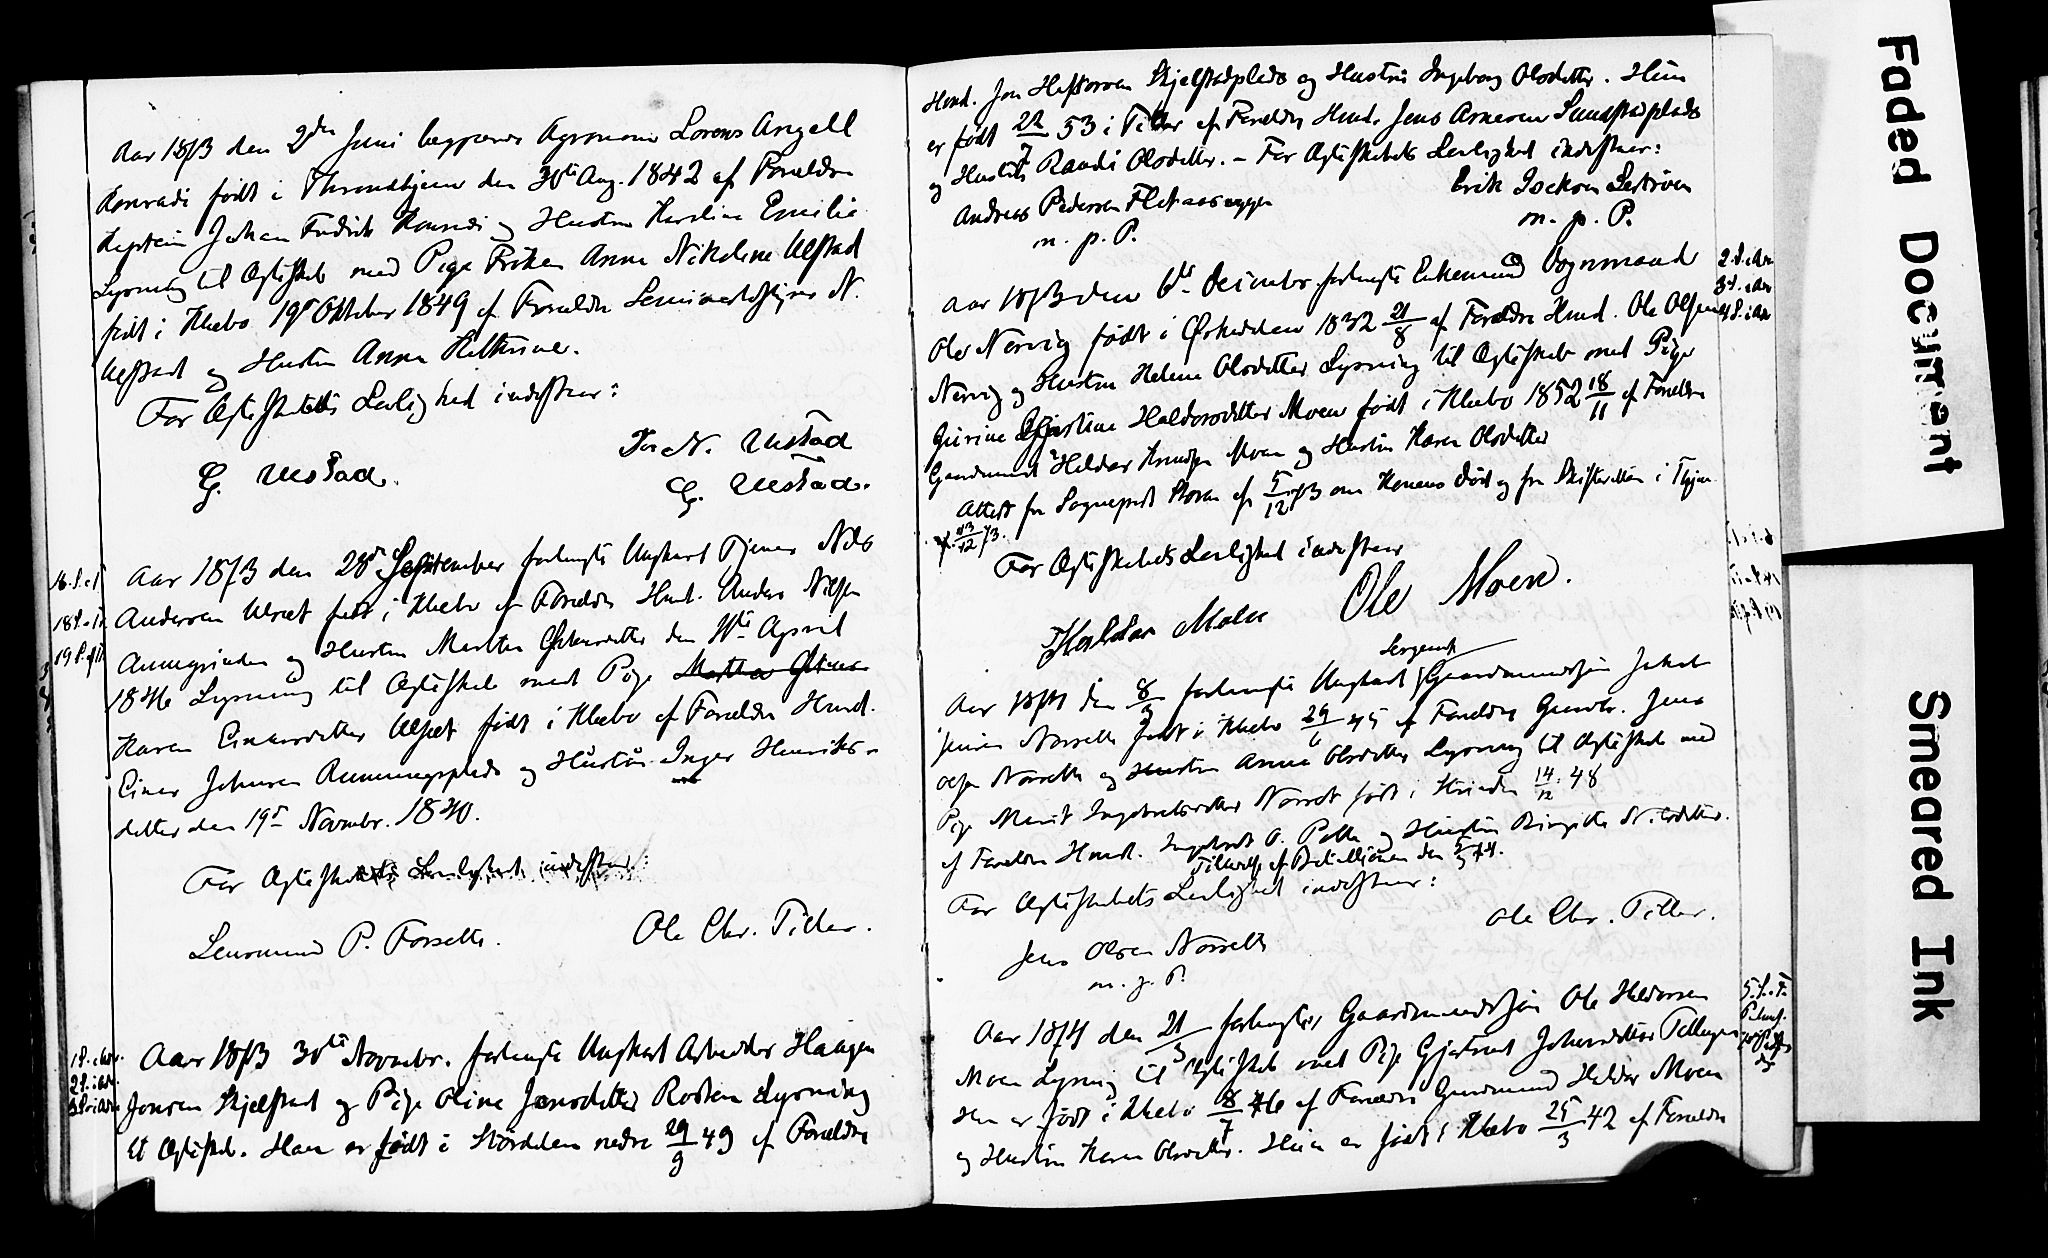 Aar 1873 den 2den Juni begjæres Agronom Lorens Angell
Konradi født i Throndhjem den 30te Aug. 1842 af Forældre
Kaptein Johan Fredrik Konradi og Hustru Karoline Emilie
Lysning til Ægteskab med Pige Frøken Anna Nikoline Ulstad
født i Klæbo 19de Oktober 1849 af Forældre Seminariebestyrer N.
Ulstad og Hustru Anna Kathrine.
For Ægteskabets Lovlighed indestaar:
For N. Ulstad
G. Ulstad. G. Ulstad.
16. S. e. T.
18 S. e. T.
19 S. e. T.
Aar 1873 den 28de September forlangte Ungkarl Tjener Nils
Andersen Ulset født i Klæbo af Forældre Husmd. Anders Nilsen
og Hustru Marthe den April
1846 Lysning til Ægteskab med Pige
Karen Einarsdatter Ulset født i Klæbo af Forældre Husmd.
Einar Johnsen og Hustru Inger Henriks-
datter den 19de Novembr. 1840.
For Ægteskabets Lovlighed indestaar:
Lensmand P. Forseth. Ole Chr. Tiller.
1 S. i Adv.
2 S. i Adv.
3 S. i Adv.
Aar 1873 30te Novembr. forlangte Ungkarl Arbeider Haagen
Jonsen Skjelstad og Pige Oline Jensdatter Rosten Lysning
til Ægteskab. Han er født i Størdalen nedre 29/9 49 af Forældre
Husmd. Jon Skjelstadplads og Hustru Ingeborg Olsdatter. Hun
er født 22/7 53 i Tiller af Forældre Husmd. Jens Arnesen Sundstadplads
og Hustru Randi Olsdatter. – For Ægteskabets Lovlighed indestaar:
Andreas Pedersen Erik
m. p. P. m. p. P.
2 S. i Adv.
3 S. i Adv.
4 S. i Adv.
Aar 1873 den 6te December forlangte Enkemand Vognmand
Ole Nervig født i Ørkedalen 1832 21/8 af Forældre Husmd. Ole Olsen
Nervig og Hustru Helene Olsdatter Lysning til Ægteskab med Pige
Gurine Kjerstine Haldorsdatter Moen født i Klæbo 1852 18/11 af Forældre
Gaardmand Haldor Knudsen Moen og Hustru Karen Olsdatter
Attest fra Sogneprest af 5/12 73 om Konens Død og fra Skifteretten i Thjem
af 13/12 73.
For Ægteskabets Lovlighed indestaar
Haldor Moen Ole Moen.
Sergeant
Aar 1874 den 8/3 forlangte Ungkarl Gaardmandssøn Jakob
Jensen Norseth født i Klæbo 29/6 45 af Forældre Gaardbr. Jens
Olsen Norseth og Hustru Anne Olsdatter Lysning til Ægteskab med
Pige Marit Ingebrigtsdatter født i Strinden 14/12 48
af Forældre Husmd. Ingebrigt O. og Hustru Birgitte Nilsdatter.
Tilladelse af Bataillonen den 5/3 74.
For Ægteskabets Lovlighed indestaar:
Ole Chr. Tiller.
Jens Olsen Norseth
m. p. P.
Aar 1874 den 21/3 forlangtes Gaardmandssøn Ole Haldorsen
Moen Lysning til Ægteskab med Pige Gjertrud Johnsdatter
Han er født i Klæbo 8/7 46 af Forældre Gaardmand Haldor Moen
og Hustru Karen Olsdatter. Hun er født i Klæbo 25/3 42 af Forældre
Faded Document
Smeared Ink